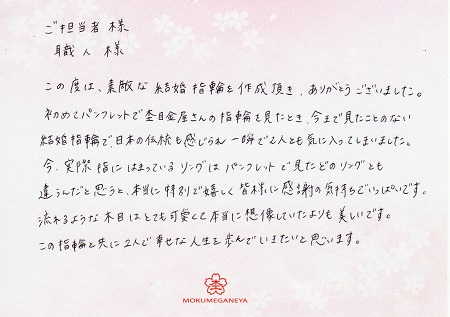 ご担当者様
職人様
この度は、素敵な結婚指輪を作成頂き、ありがとうございました。
初めてパンフレットで杢目金屋さんの指輪を見たとき、今まで見たことのない
結婚指輪で日本の伝統も感じられ一瞬で2人とも気に入ってしまいました。
今、実際指にはまっているリングはパンフレットで見たどのリングとも
違うんだと思うと、本当に特別で嬉しく皆様に感謝の気持ちでいっぱいです。
流れるような木目はとても可愛くて本当に想像していたよりも美しいです。
この指輪と共に2人で幸せな人生を歩んでいきたいと思います。
MOKUMEGANEYA